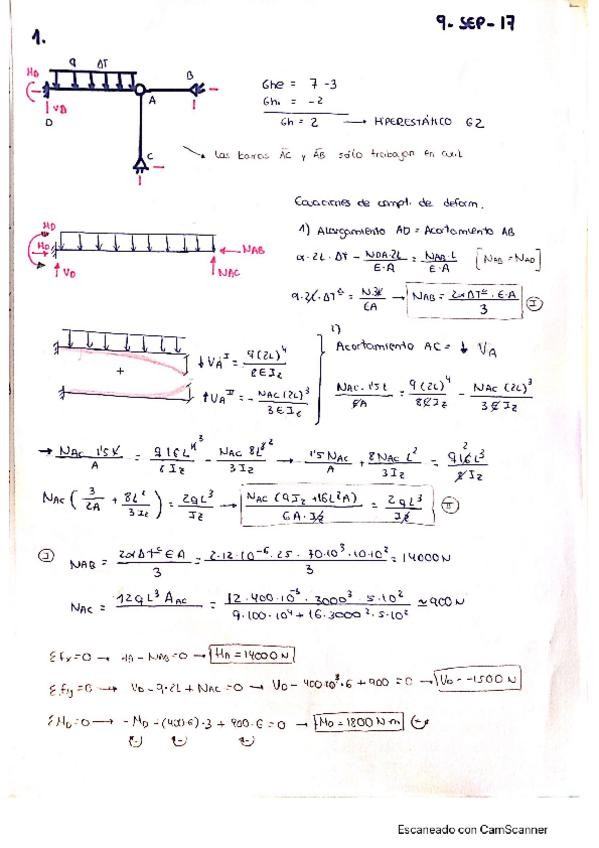 9-SEP-17
1.
q ΔT
MD
B
A
VD
D
C
Ghe = 7-3
Ghi = -2
Gh = 2 → HIPERESTÁTICO G2
Las barras AC y AB sólo trabajan en axil
Ecuaciones de compt. de deform.
1) Alargamiento AD = Acortamiento AB
α·2L·ΔT - NDA·2L/E·A = NAB·L/E·A [NAB = NAD]
NAB = 2αΔTᵉ·E·A/3 I
MD
HD
VD
NAB
NAC
2)
Acortamiento AC = ↓ VA
↓VAᴵ = q(2L)⁴/8EIz
+
↑VAᴵᴵ = -NAC(2L)³/3EIz
NAC·1'5L/EA = q(2L)⁴/8EIz - NAC(2L)³/3EIz
→ NAC 1'5L/A = - NAC 8L³/3Iz → 1'5NAC/A + 8NAC L²/3Iz = q16L³/8Iz
NAC (3/2A + 8L²/3Iz) = 2qL³/Iz → NAC (9Iz + 16L²A)/6A·Iz = 2qL³/Iz II
I NAB = 2αΔTᵉEA/3 = 2·12·10⁻⁶·25·70·10³·10·10²/3 = 14000N
NAC = 12qL³AAC = 12·400·10⁻³·3000³·5·10²/9·100·10⁴+16·3000²·5·10² ≃ 900N
ΣFx=0 → HA - NAB=0 → HA = 14000N
ΣFy=0 → VD - q·2L + NAC = 0 → VD - 400·10³·6 + 900 = 0 → VD = -1500N
ΣMD=0 → -MD - (400·6)·3 + 900·6 = 0 → MD = 1800 N·m
Escaneado con CamScanner